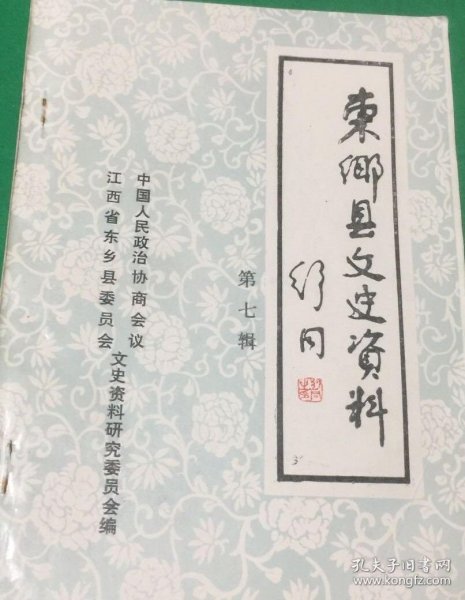 東鄉县文史資料
舒同
第七辑
中国人民政治协商会议
江西省东乡县委员会
文史资料研究委员会编
孔夫子旧书网
www.kongfz.com